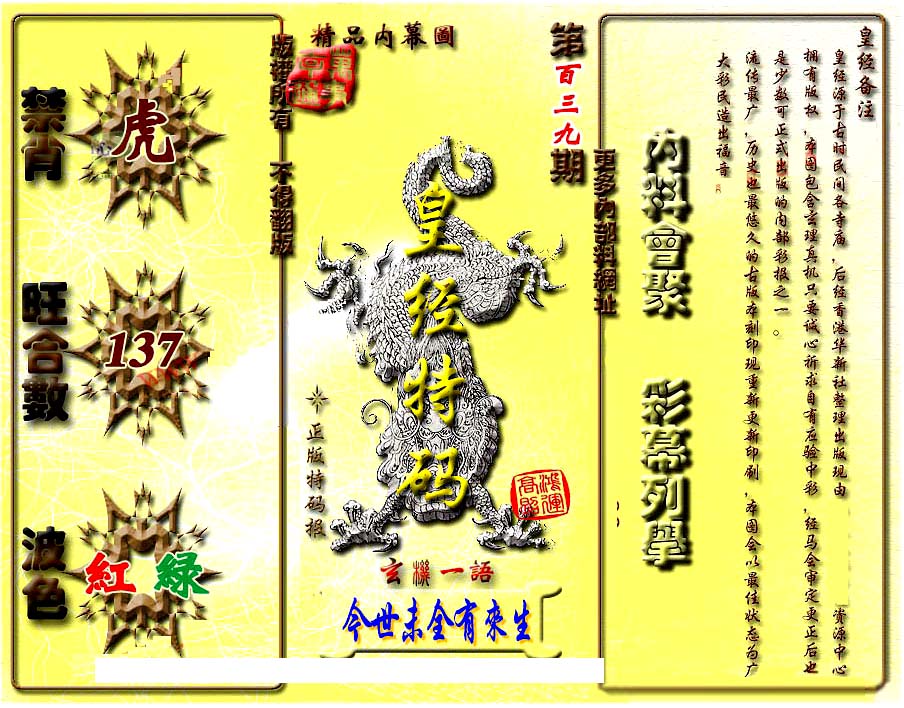 皇经备注
皇经源于古时民间各寺庙，后经香港华新社整理出版现由 资源中心
拥有版权，本图包含玄理真机只要诚心祈求自有应验中彩，经马会审定更正后也
是少数可正式出版的内部彩报之一。
流传最广，历史也最悠久的古版本刻印现重新更新印刷，本图会以最佳状态为广
大彩民造出福音。
内料會聚 彩幕列舉
更多内部料網址
第百三九期
精品内幕圖
版權所有 不得翻版
皇经特码
正版特码报
鴻運高照
玄機一語
今世未全有來生
禁肖
虎
旺合數
137
波色
紅 綠